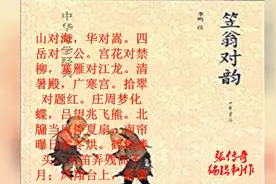 中华
学经
笠翁对韵
李渔 撰
中华书局
山对海，华对嵩。四
岳对三公。宫花对禁
柳，塞雁对江龙。清
暑殿，广寒宫。拾翠
对题红。庄周梦化
蝶，吕望兆飞熊。北
牖当风停夏扇，南帘
曝日省冬烘。鹤舞楼
头，玉笛弄残仙子
月；凤翔台上，
张传奇
编辑制作